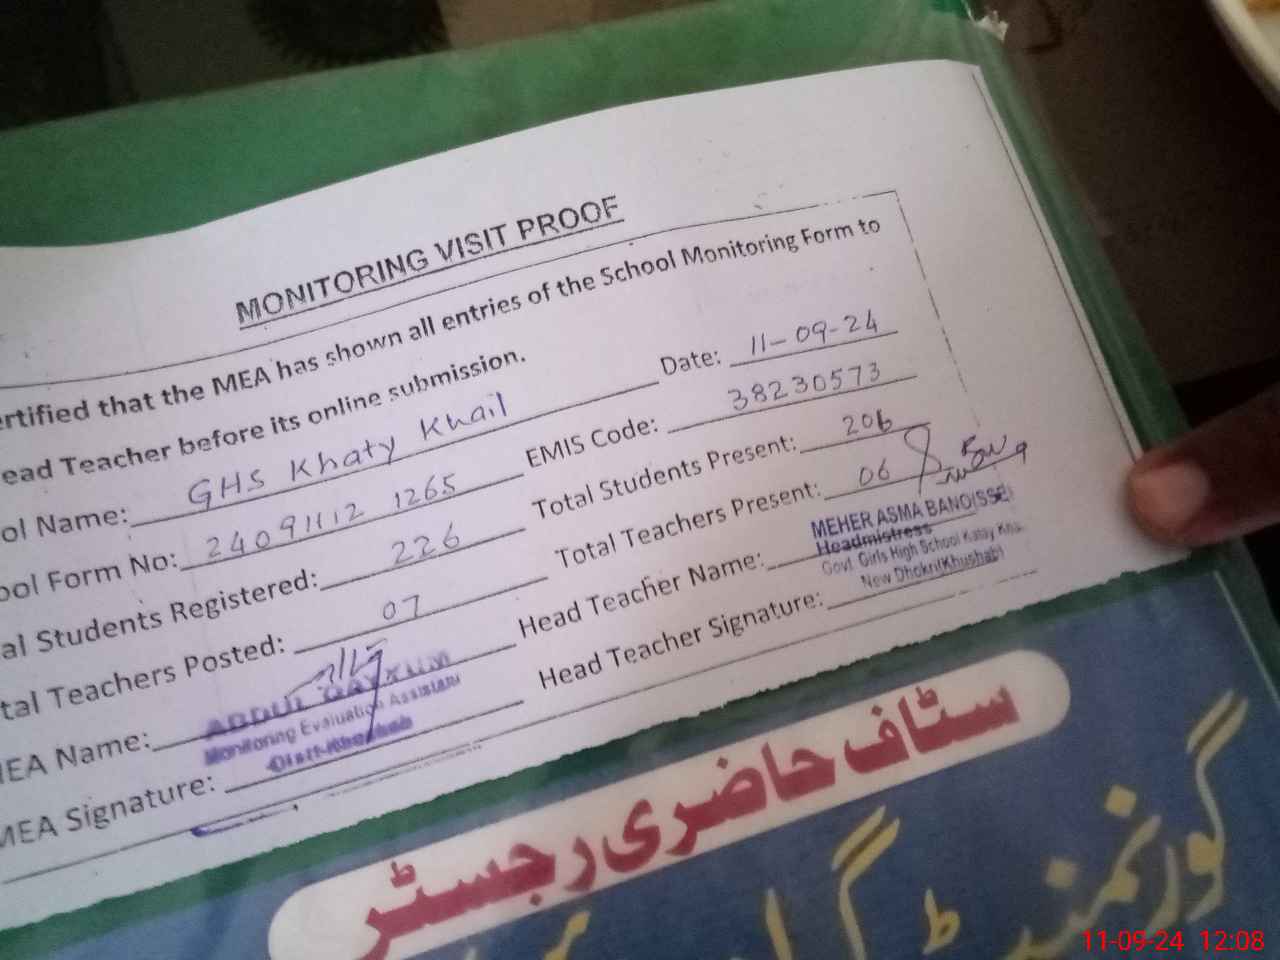 MONITORING VISIT PROOF
ertified that the MEA has shown all entries of the School Monitoring Form to
ead Teacher before its online submission.
ol Name: GHS Khaty Khail Date: 11-09-24
ool Form No: 24091112 1265 EMIS Code: 38230573
al Students Registered: 226 Total Students Present: 206
tal Teachers Posted: 07 Total Teachers Present: 06
MEA Name: ABDUL QAYYUM Head Teacher Name: MEHER ASMA BANO(SSE)
Monitoring Evaluation Assistant Headmistress
Govt Girls High School Katay
New Dhokri(Khushab)
MEA Signature: Head Teacher Signature:
سٹاف حاضری رجسٹر
گورنمنٹ
11-09-24 12:08